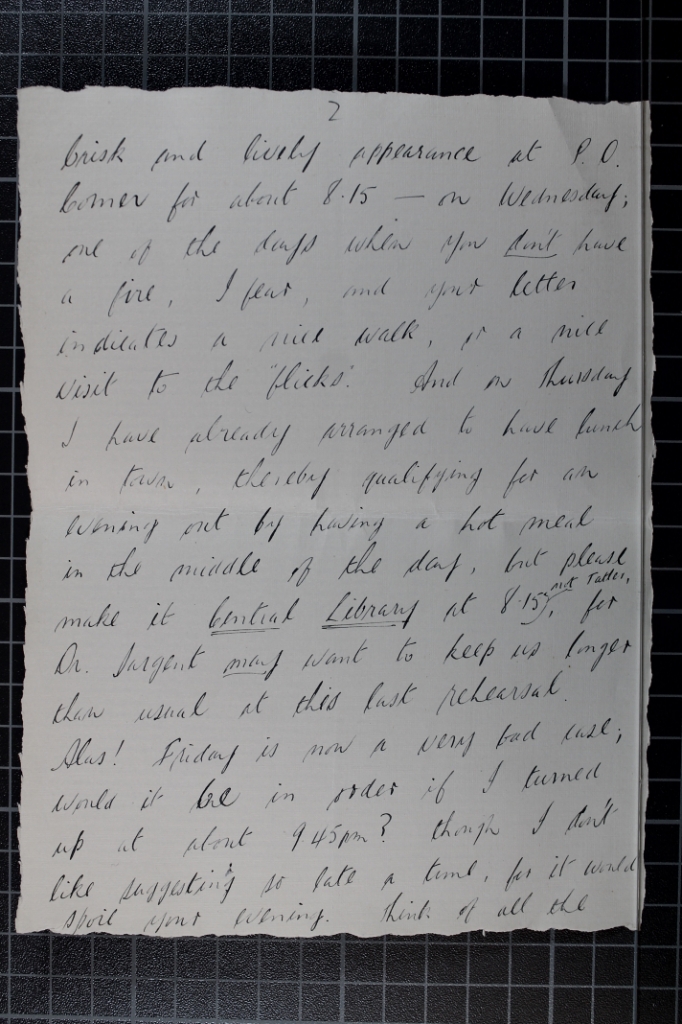 2
brisk and lively appearance at P.O.
Corner for about 8.15 — on Wednesday;
one of the days when you don't have
a fire, I fear, and your letter
indicates a nice walk, or a nice
visit to the "flicks". And on Thursday
I have already arranged to have lunch
in town, thereby qualifying for an
evening out by having a hot meal
in the middle of the day, but please
make it Central Library at 8.15, not
for
Dr. Sargent may want to keep us longer
than usual at this last rehearsal.
Alas! Friday is now a very bad case;
would it be in order if I turned
up at about 9.45pm? though I don't
like suggesting so late a time, for it would
spoil your evening. Think of all the